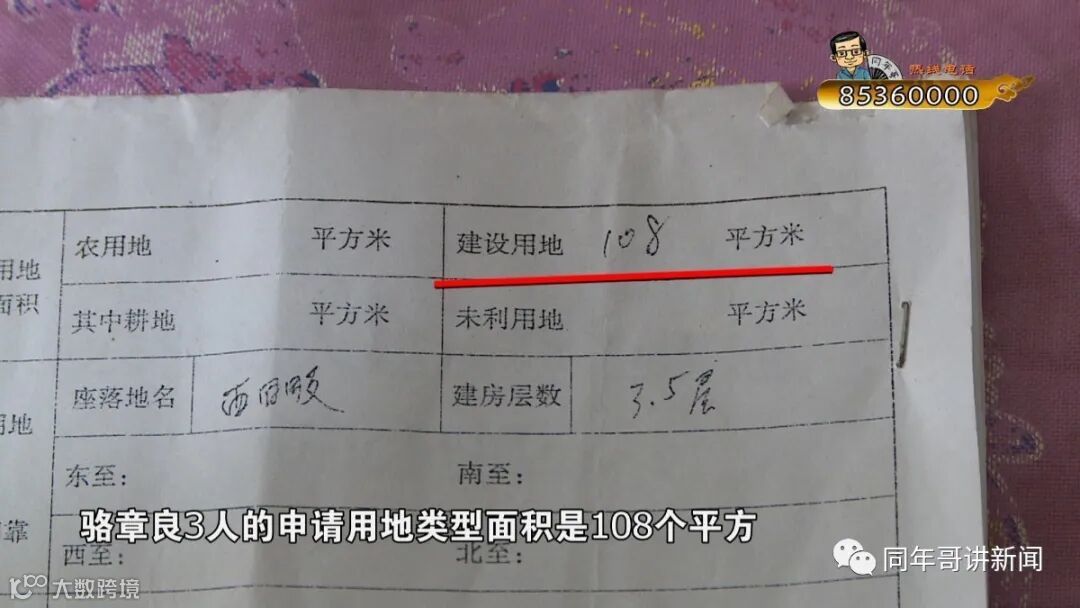 同年哥
热线电话
85360000
农用地 平方米 建设用地 108 平方米
用地
面积
其中耕地 平方米 未利用地 平方米
座落地名 西田畈 建房层数 3.5层
用地
东至: 南至:
靠
骆章良3人的申请用地类型面积是108个平方
西至: 北至:
同年哥讲新闻
大数跨境